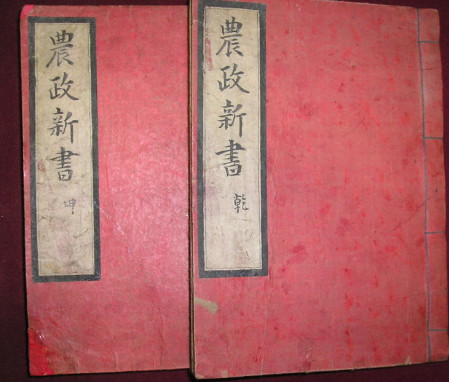 農政新書
乾
農政新書
坤